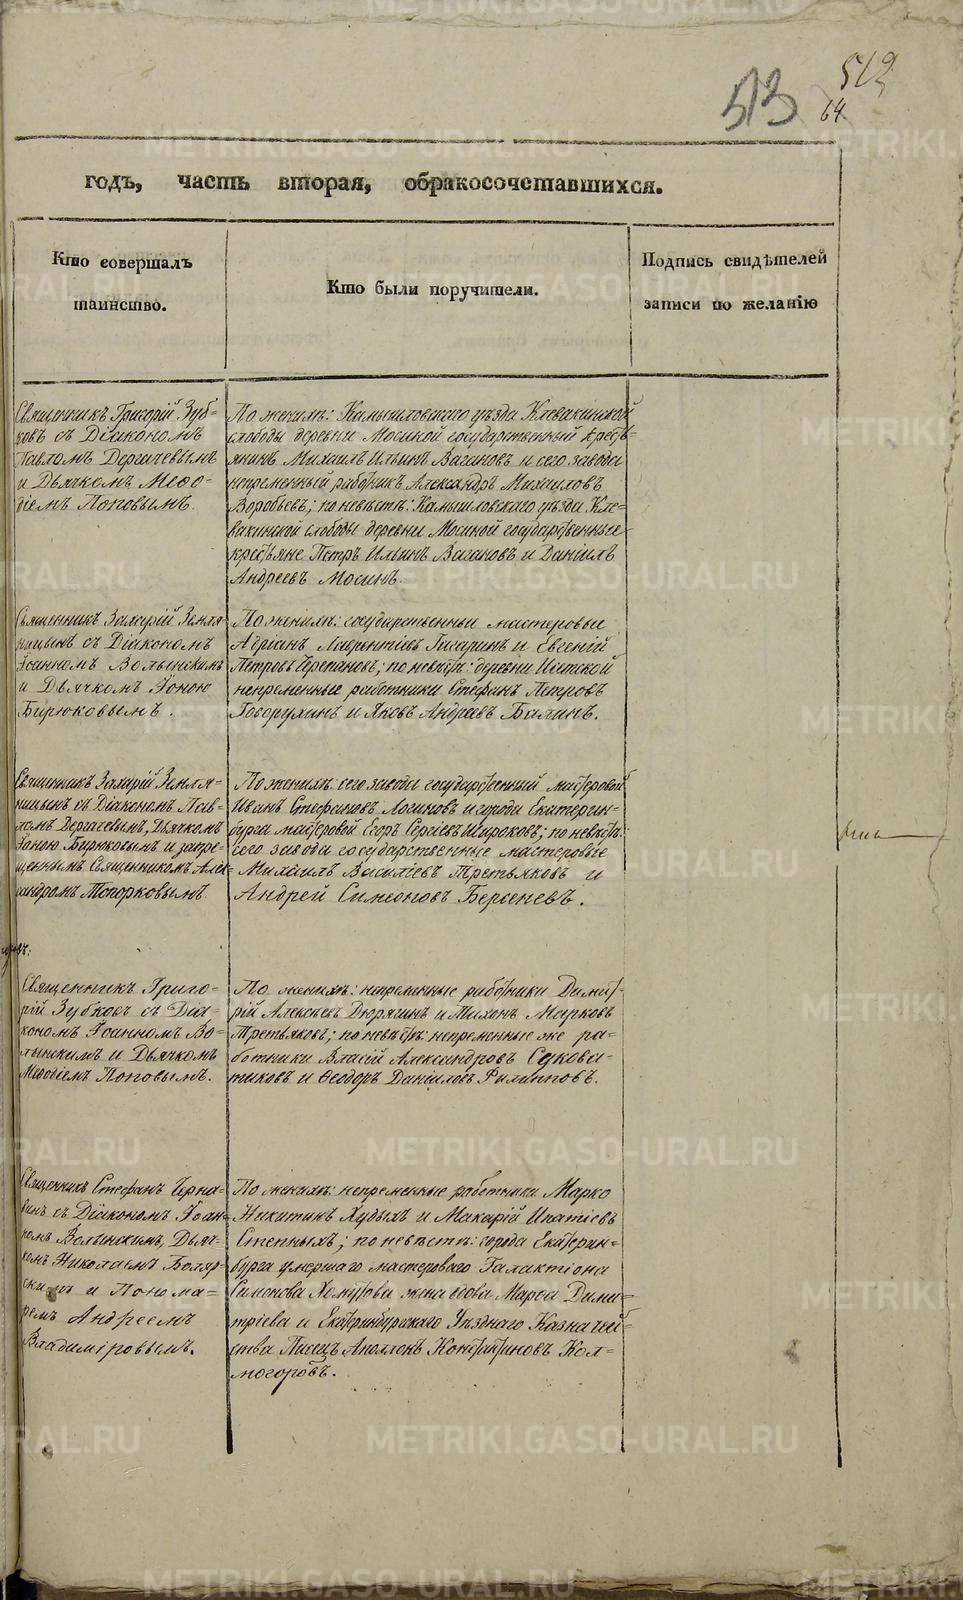 512
513
64.
годъ, часть вторая, обракосочетавшихся.
Кто совершалъ
таинство.
Кто были поручители.
Подпись свидѣтелей
записи по желанію
Священникъ Григорій Зуб-
ковъ съ Діакономъ
Павломъ Дергачевымъ
и Дьячкомъ Меѳо-
діемъ Поповымъ.
По женихѣ: Камышловскаго уѣзда Клевакинской
слободы деревни Мосиной государственный крестья-
янинъ Михаилъ Ильинъ Ваганов и сего завода
непременный работникъ Александръ Михаиловъ
Воробьевъ; по невѣстѣ: Камышловскаго уѣзда Кле-
вакинской слободы деревни Мосиной государственные
крестьяне Петръ Ильинъ Вагановъ и Даніилъ
Андреевъ Мосинъ.
Священникъ Захарій Земля-
ницынъ съ Діакономъ
Іоанномъ Волынскимъ
и Дьячкомъ Іоною
Бирюковымъ.
По женихѣ: государственные мастеровые
Адріанъ Лаврентіевъ и Евгеній
Петровъ Черепановъ; по невѣстѣ: деревни
непременные работники Стефанъ Петровъ
и Яковъ Андреевъ Балинъ.
Священникъ Захарій Земля-
ницынъ съ Діакономъ Пав-
ломъ Дергачевымъ, Дьячкомъ
Іоною Бирюковымъ и запре-
щеннымъ Священникомъ Алек-
сандромъ Топорковымъ.
По женихѣ: сего завода государственный мастеровой
Иванъ Стефановъ Логиновъ и города Екатерин-
бурга мастеровой Егоръ Сергіевъ Широковъ; по невѣстѣ:
сего завода государственные мастеровые
Михаилъ Василіевъ Третьяковъ и
Андрей Симеоновъ Берсеневъ.
Священникъ Григо-
рій Зубковъ съ Діа-
кономъ Іоанномъ Во-
лынскимъ и Дьячкомъ
Меѳодіемъ Поповымъ.
По женихѣ: непременные работники Димит-
рій Алексѣевъ Дюрягинъ и Тихонъ Марковъ
Третьяковъ; по невѣстѣ: непременные же ра-
ботники Власій Александровъ
и Ѳеодоръ Даніиловъ Филипповъ.
Священникъ Стефанъ Черна-
винъ съ Діакономъ Іоан-
номъ Волынскимъ, Дьяч-
комъ Николаемъ Бояр-
скимъ и Понома-
ремъ Андреемъ
Владиміровымъ.
По женихѣ: непременные работники Марко
Никитинъ Худыхъ и Макарій Ипатіевъ
Степныхъ; по невѣстѣ: города Екатерин-
бурга умершаго мастероваго Галактіона
Симонова Хомутова жена вдова Марѳа Дими-
тріева и Екатеринбургскаго Уѣзднаго Казначей-
ства Писецъ Аполлонъ Константиновъ Кол-
могоровъ.
METRIKI.GASO-URAL.RU